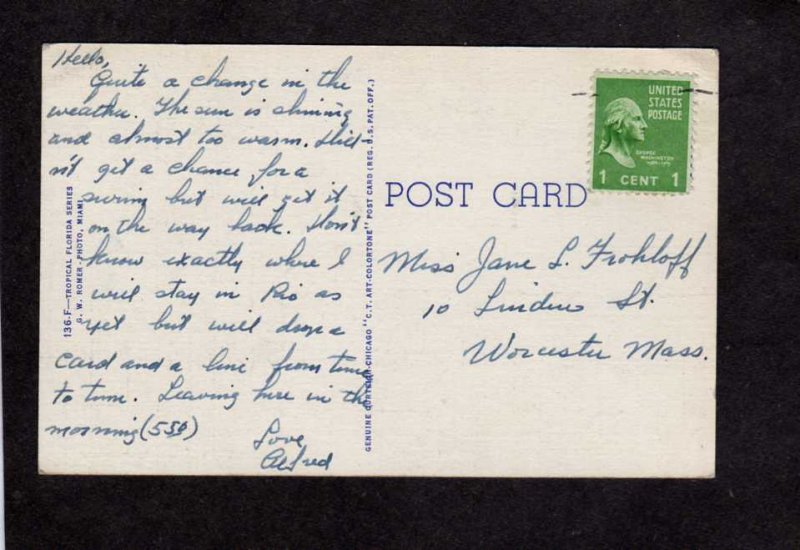 Hello,
Quite a change in the
weather. The sun is shining
and almost too warm. Did-
n't get a chance for a
swing but will get it
on the way back. Don't
know exactly where I
will stay in Rio as
yet but will drop a
card and a line from time
to time. Leaving here in the
morning (5
Love
Alfred
136-F—TROPICAL FLORIDA SERIES
G. W. ROMER - PHOTO, MIAMI
GENUINE CURTEICH-CHICAGO "C.T. ART-COLORTONE" POST CARD (REG. U.S. PAT. OFF.)
POST CARD
UNITED
STATES
POSTAGE
GEORGE
WASHINGTON
1 CENT 1
Miss Jane L. Frohloff
10 St.
Worcester Mass.